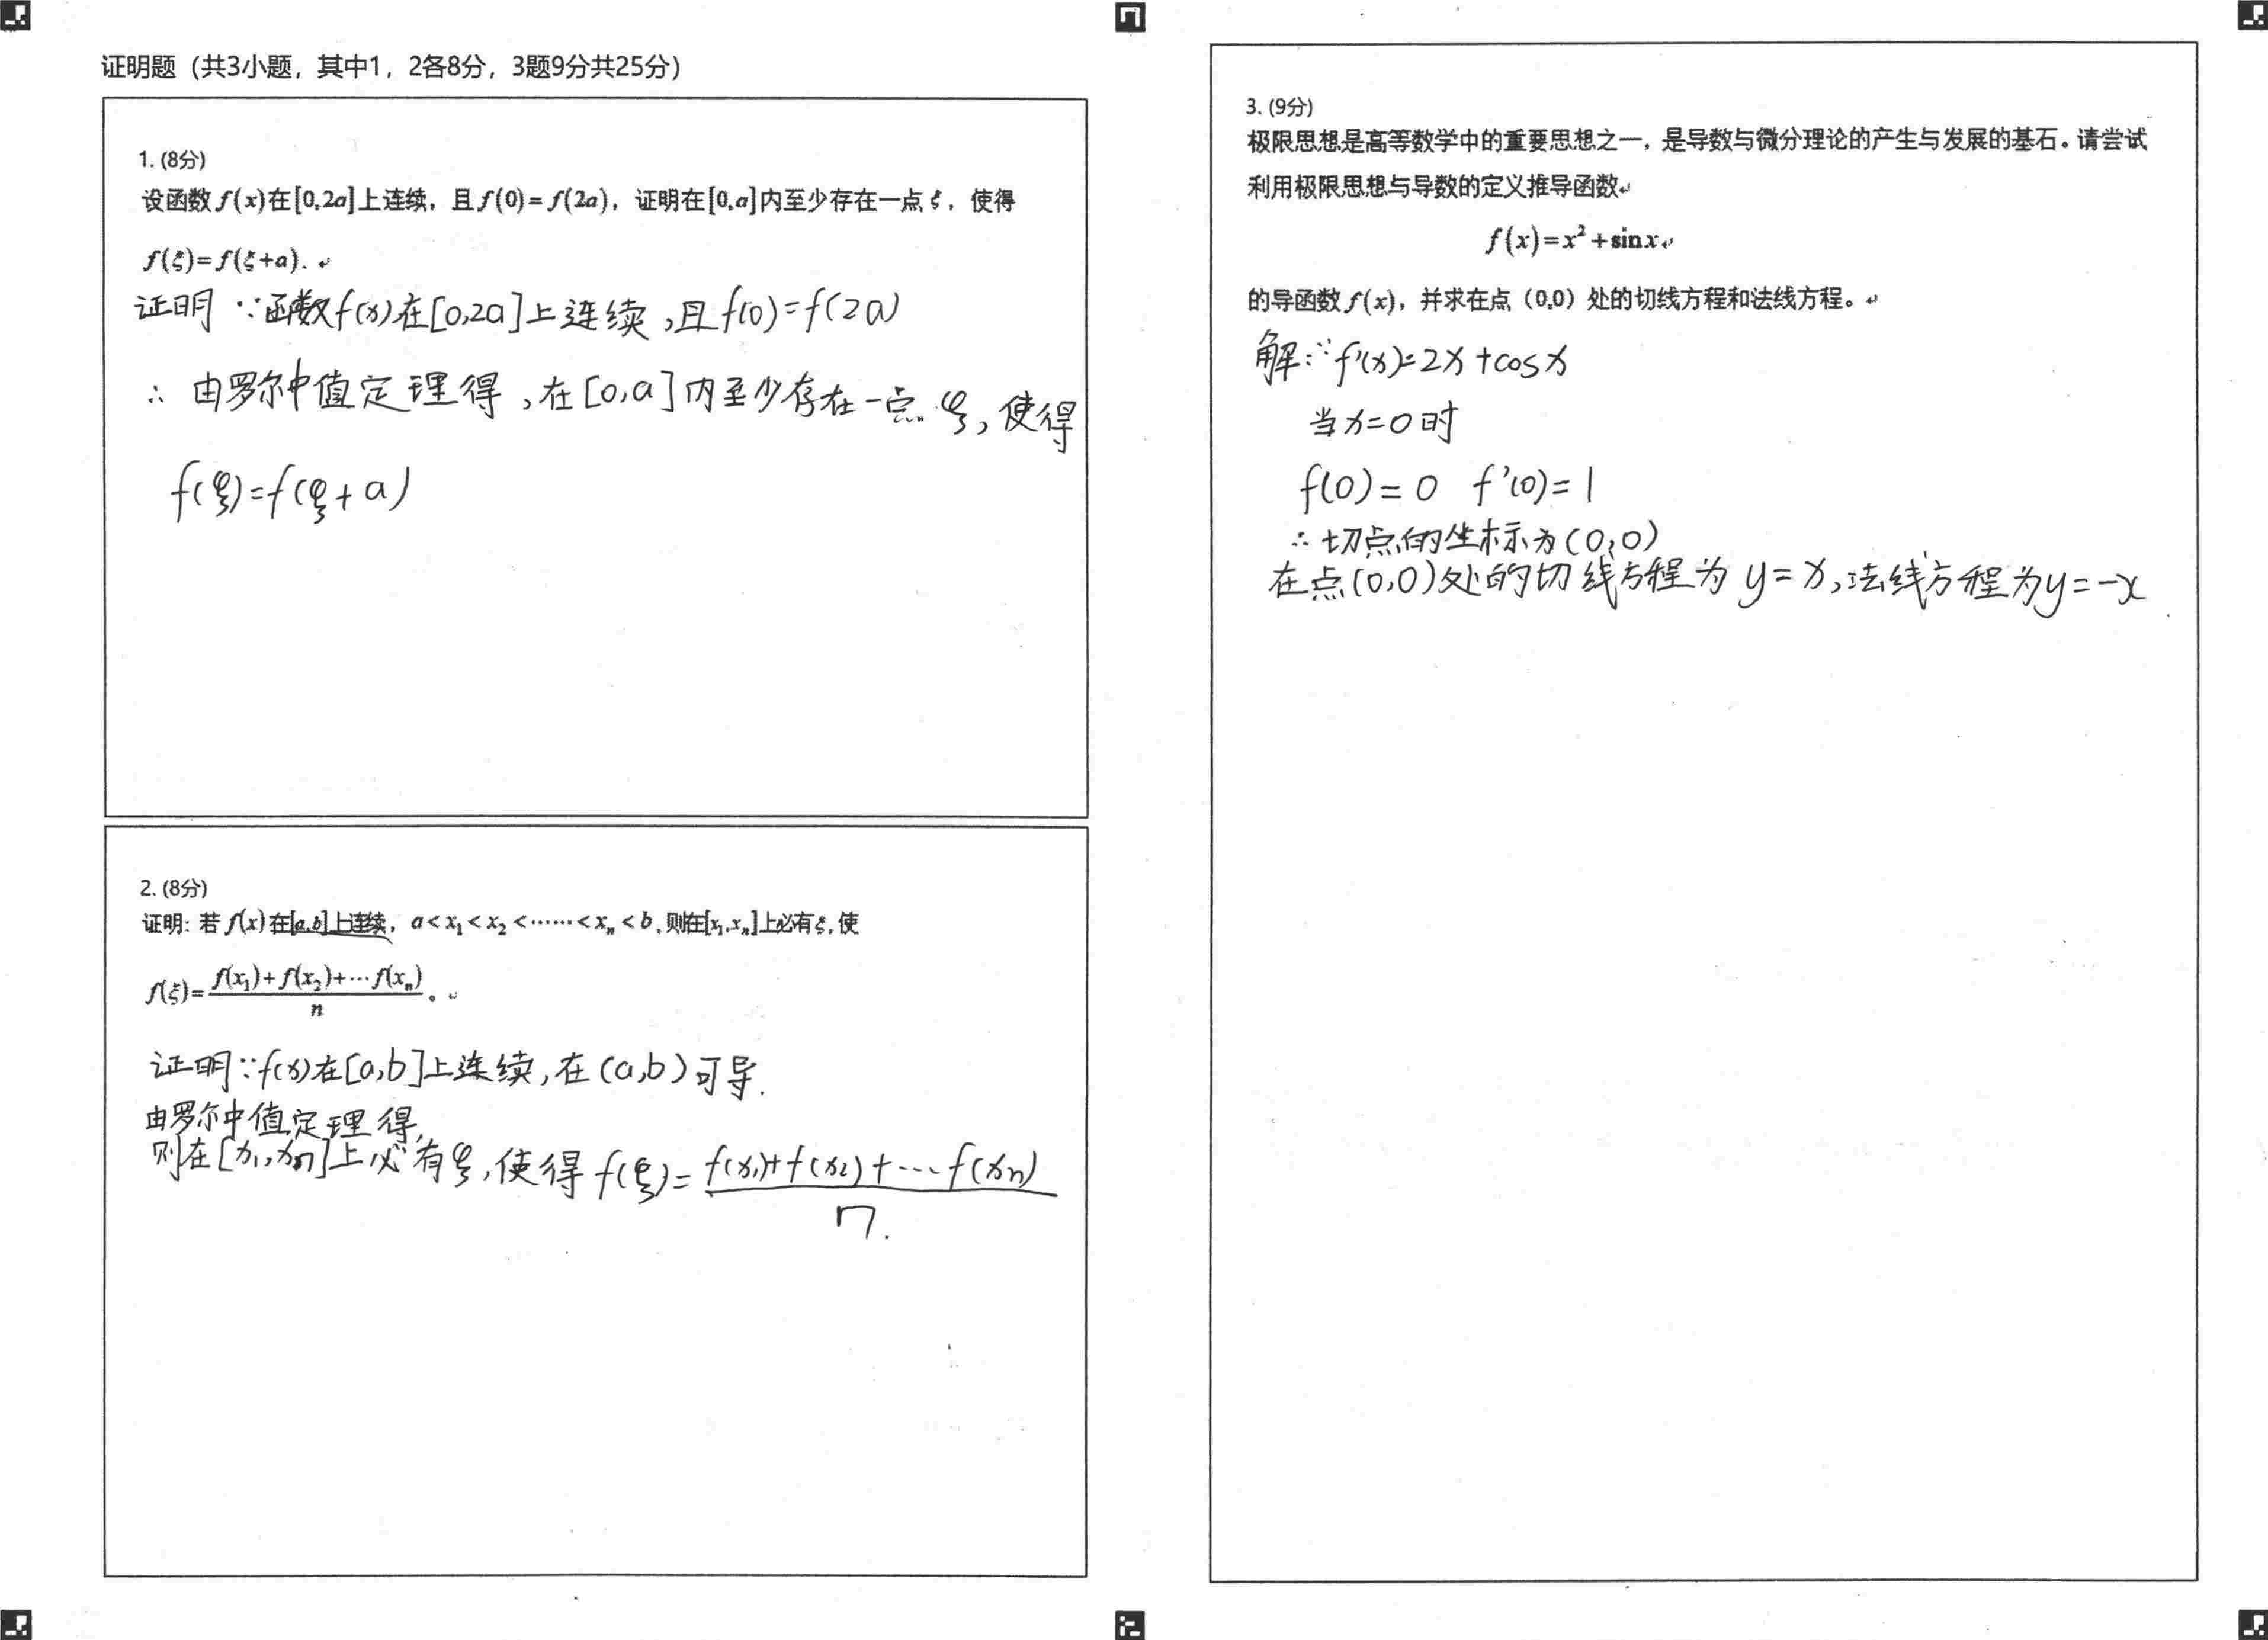 证明题（共3小题，其中1，2各8分，3题9分共25分）
1. (8分)
设函数 f(x) 在 [0,2a] 上连续，且 f(0) = f(2a)，证明在 [0,a] 内至少存在一点 ξ，使得
f(ξ) = f(ξ+a).
证明 ∵函数f(x)在[0,2a]上连续,且f(0)=f(2a)
∴ 由罗尔中值定理得,在[0,a]内至少存在一点ξ,使得
f(ξ)=f(ξ+a)
2. (8分)
证明: 若 f(x) 在[a,b]上连续，a < x₁ < x₂ < …… < xₙ < b , 则在[x₁,xₙ]上必有ξ, 使
f(ξ) = (f(x₁)+ f(x₂)+ ⋯ f(xₙ))/n 。
证明∵f(x)在[a,b]上连续,在(a,b)可导.
由罗尔中值定理得,
则在[x₁,xₙ]上必有ξ,使得 f(ξ)= (f(x₁)+f(x₂)+⋯f(xₙ))/n.
3. (9分)
极限思想是高等数学中的重要思想之一，是导数与微分理论的产生与发展的基石。请尝试
利用极限思想与导数的定义推导函数
f(x)=x²+sinx
的导函数 f(x)，并求在点（0,0）处的切线方程和法线方程。
解:∵f'(x)=2x+cosx
当x=0时
f(0)=0 f'(0)=1
∴切点的坐标为(0,0)
在点(0,0)处的切线方程为y=x,法线方程为y=-x